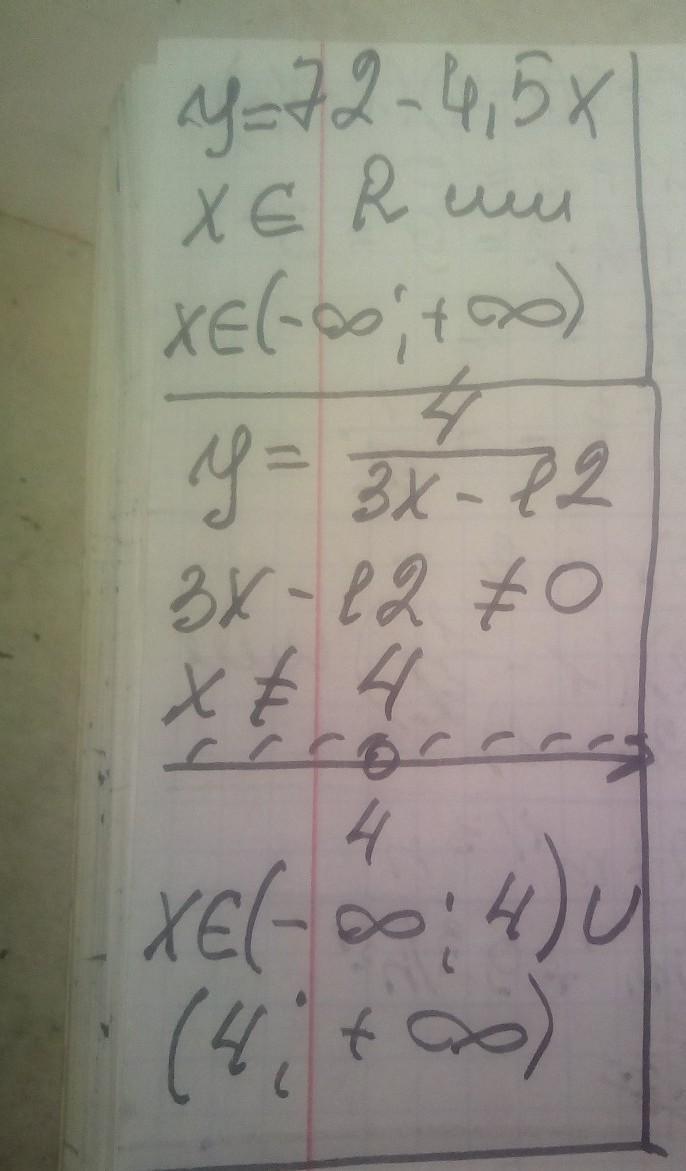 y=72-4,5x
x ∈ R или
x∈(-∞;+∞)
y = 4/(3x-12)
3x-12 ≠ 0
x ≠ 4
4
x∈(-∞;4)∪
(4;+∞)